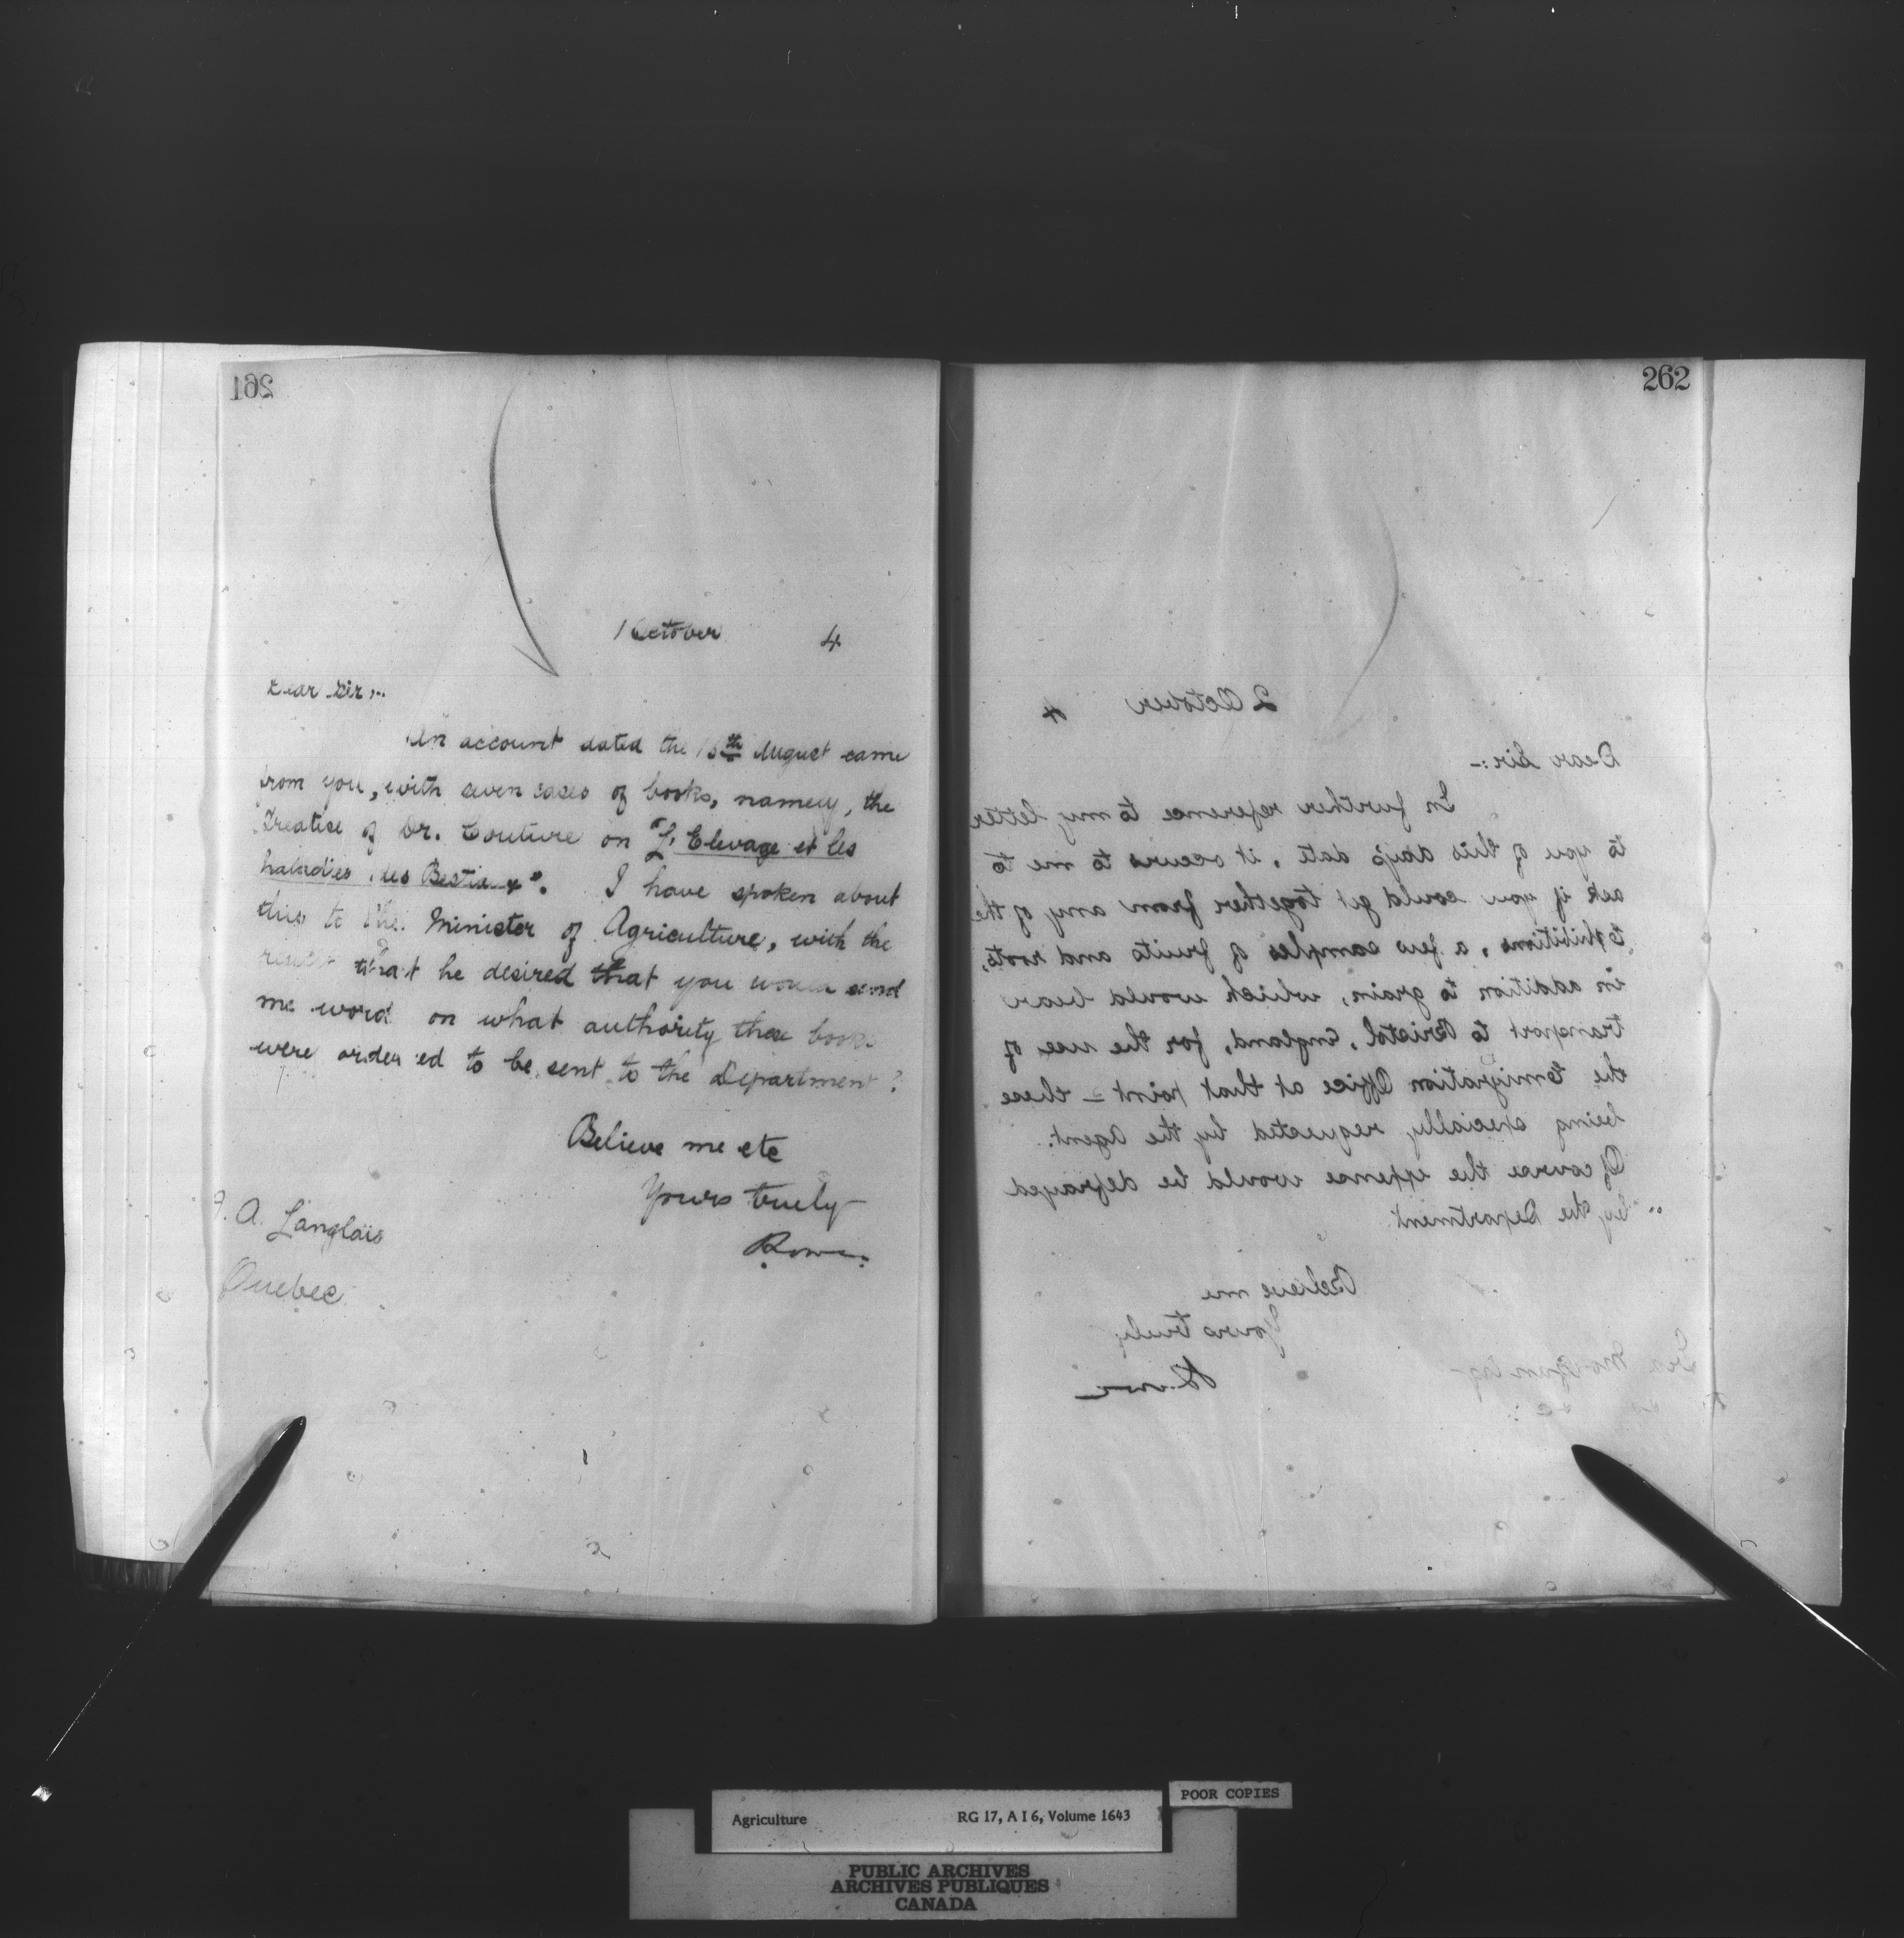 261
1 October 4
Dear Sir,..
An account dated the 15th August came
from you, with seven cases of books, namely, the
Treatise of Dr. Couture on "L'Elevage et les
Maladies des Bestiaux". I have spoken about
this to the Minister of Agriculture, with the
result that he desired that you would send
me word on what authority these books
were ordered to be sent to the Department?
Believe me etc
Yours truly
J. A. Langlais
Quebec
262
2 October 4
Dear Sir:-
In further reference to my letter
to you of this day's date, it occurs to me to
ask if you could get together from any of the
Exhibitions, a few samples of fruits and roots,
in addition to grain, which would bear
transport to Bristol, England, for the use of
the Emigration Office at that point - these
being specially requested by the Agent.
Of course the expense would be defrayed
by the Department.
Believe me
Yours truly
Agriculture RG 17, A I 6, Volume 1643
POOR COPIES
PUBLIC ARCHIVES
ARCHIVES PUBLIQUES
CANADA